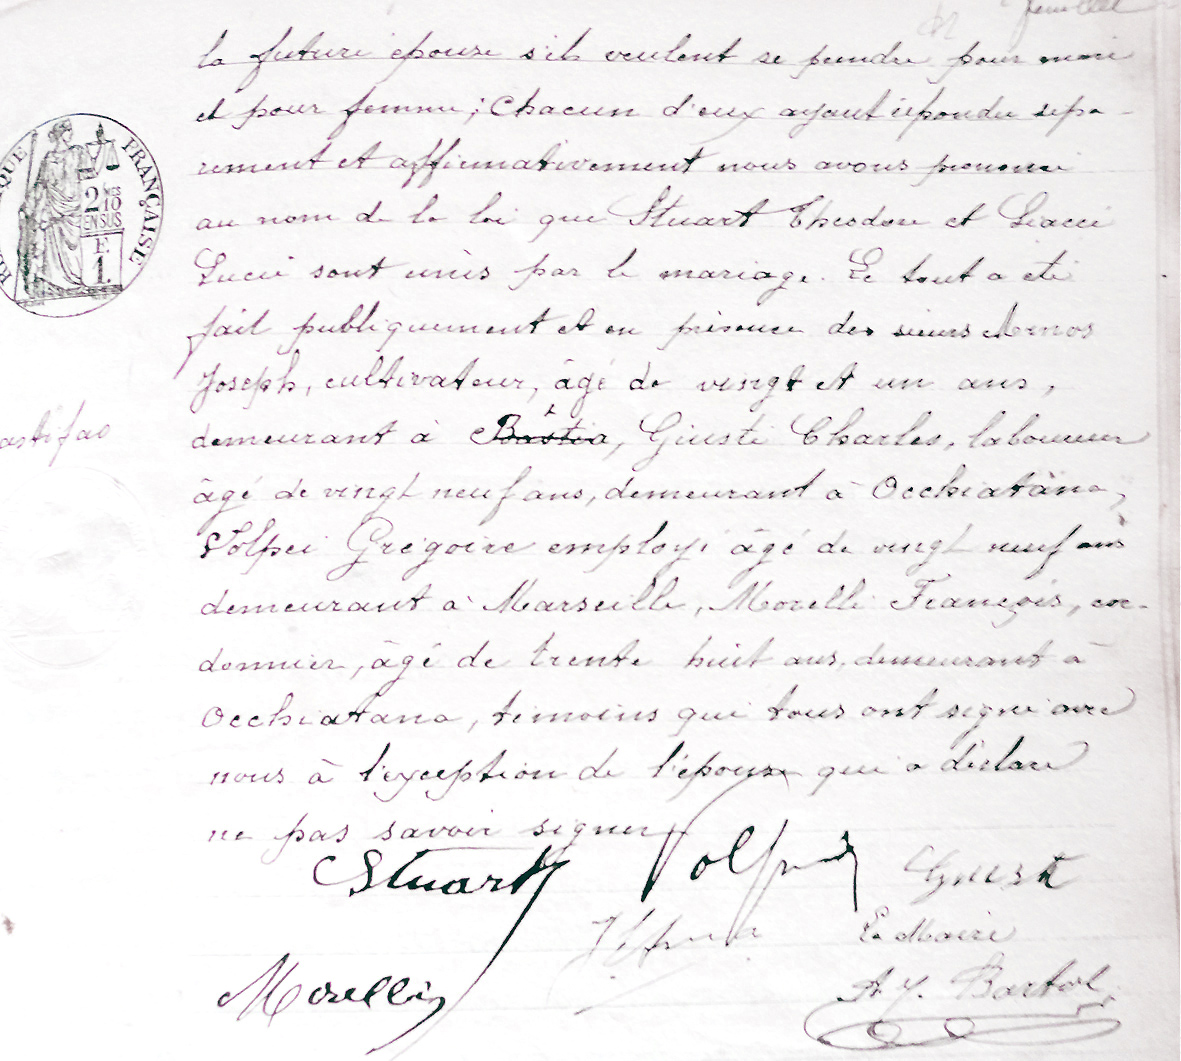 feuillet
la future épouse s'ils veulent se prendre pour mari
et pour femme; Chacun d'eux ayant répondu sépa-
rément et affirmativement nous avons prononcé
au nom de la loi que Stuart Théodore et Giacci
Lucie sont unis par le mariage. Le tout a été
fait publiquement et en présence des sieurs Arnos
Joseph, cultivateur, âgé de vingt et un ans,
demeurant à Bastia, Giusti Charles, laboureur
âgé de vingt neuf ans, demeurant à Occhiatana,
Volpei Grégoire employé âgé de vingt neuf ans
demeurant à Marseille, Morelli François, cor-
donnier, âgé de trente huit ans, demeurant à
Occhiatana, témoins qui tous ont signé avec
nous à l'exception de l'épouse qui a déclaré
ne pas savoir signer
RÉPUBLIQUE FRANÇAISE
2/10
EN SUS
E.
1.
astifao
Stuart Volpei Giusti
Le Maire
Morelli
A. J. Bartoli